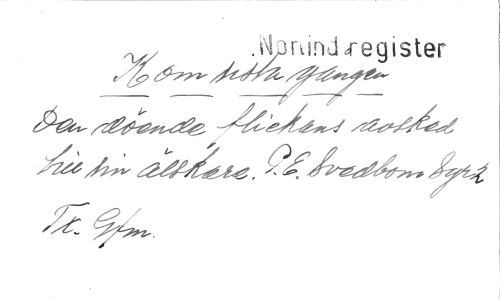 Nominalregister
Kom sista gången
Den döende flickans avsked
till sin älskare. P. E. Svedbom Syrk
Tx. Gfm.